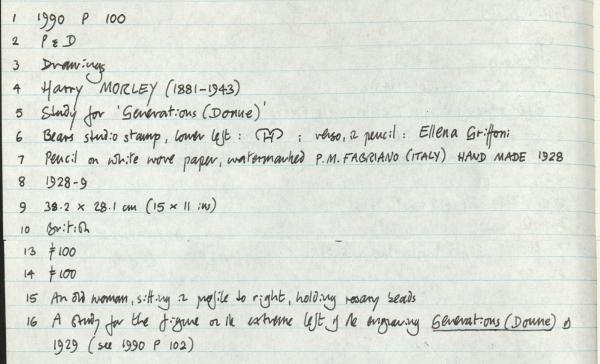 1 1990 P 100
2 P & D
3 Drawings
4 Harry MORLEY (1881-1943)
5 Study for 'Generations (Donne)'
6 Bears studio stamp, lower left : ; verso, in pencil : Ellena Griffoni
7 Pencil on white wove paper, watermarked P.M. FABRIANO (ITALY) HAND MADE 1928
8 1928-9
9 38.2 × 28.1 cm (15 × 11 in)
10 British
13 £100
14 £100
15 An old woman, sitting in profile to right, holding rosary beads
16 A study for the figure on the extreme left of the engraving Generations (Donne) of
1929 (see 1990 P 102)